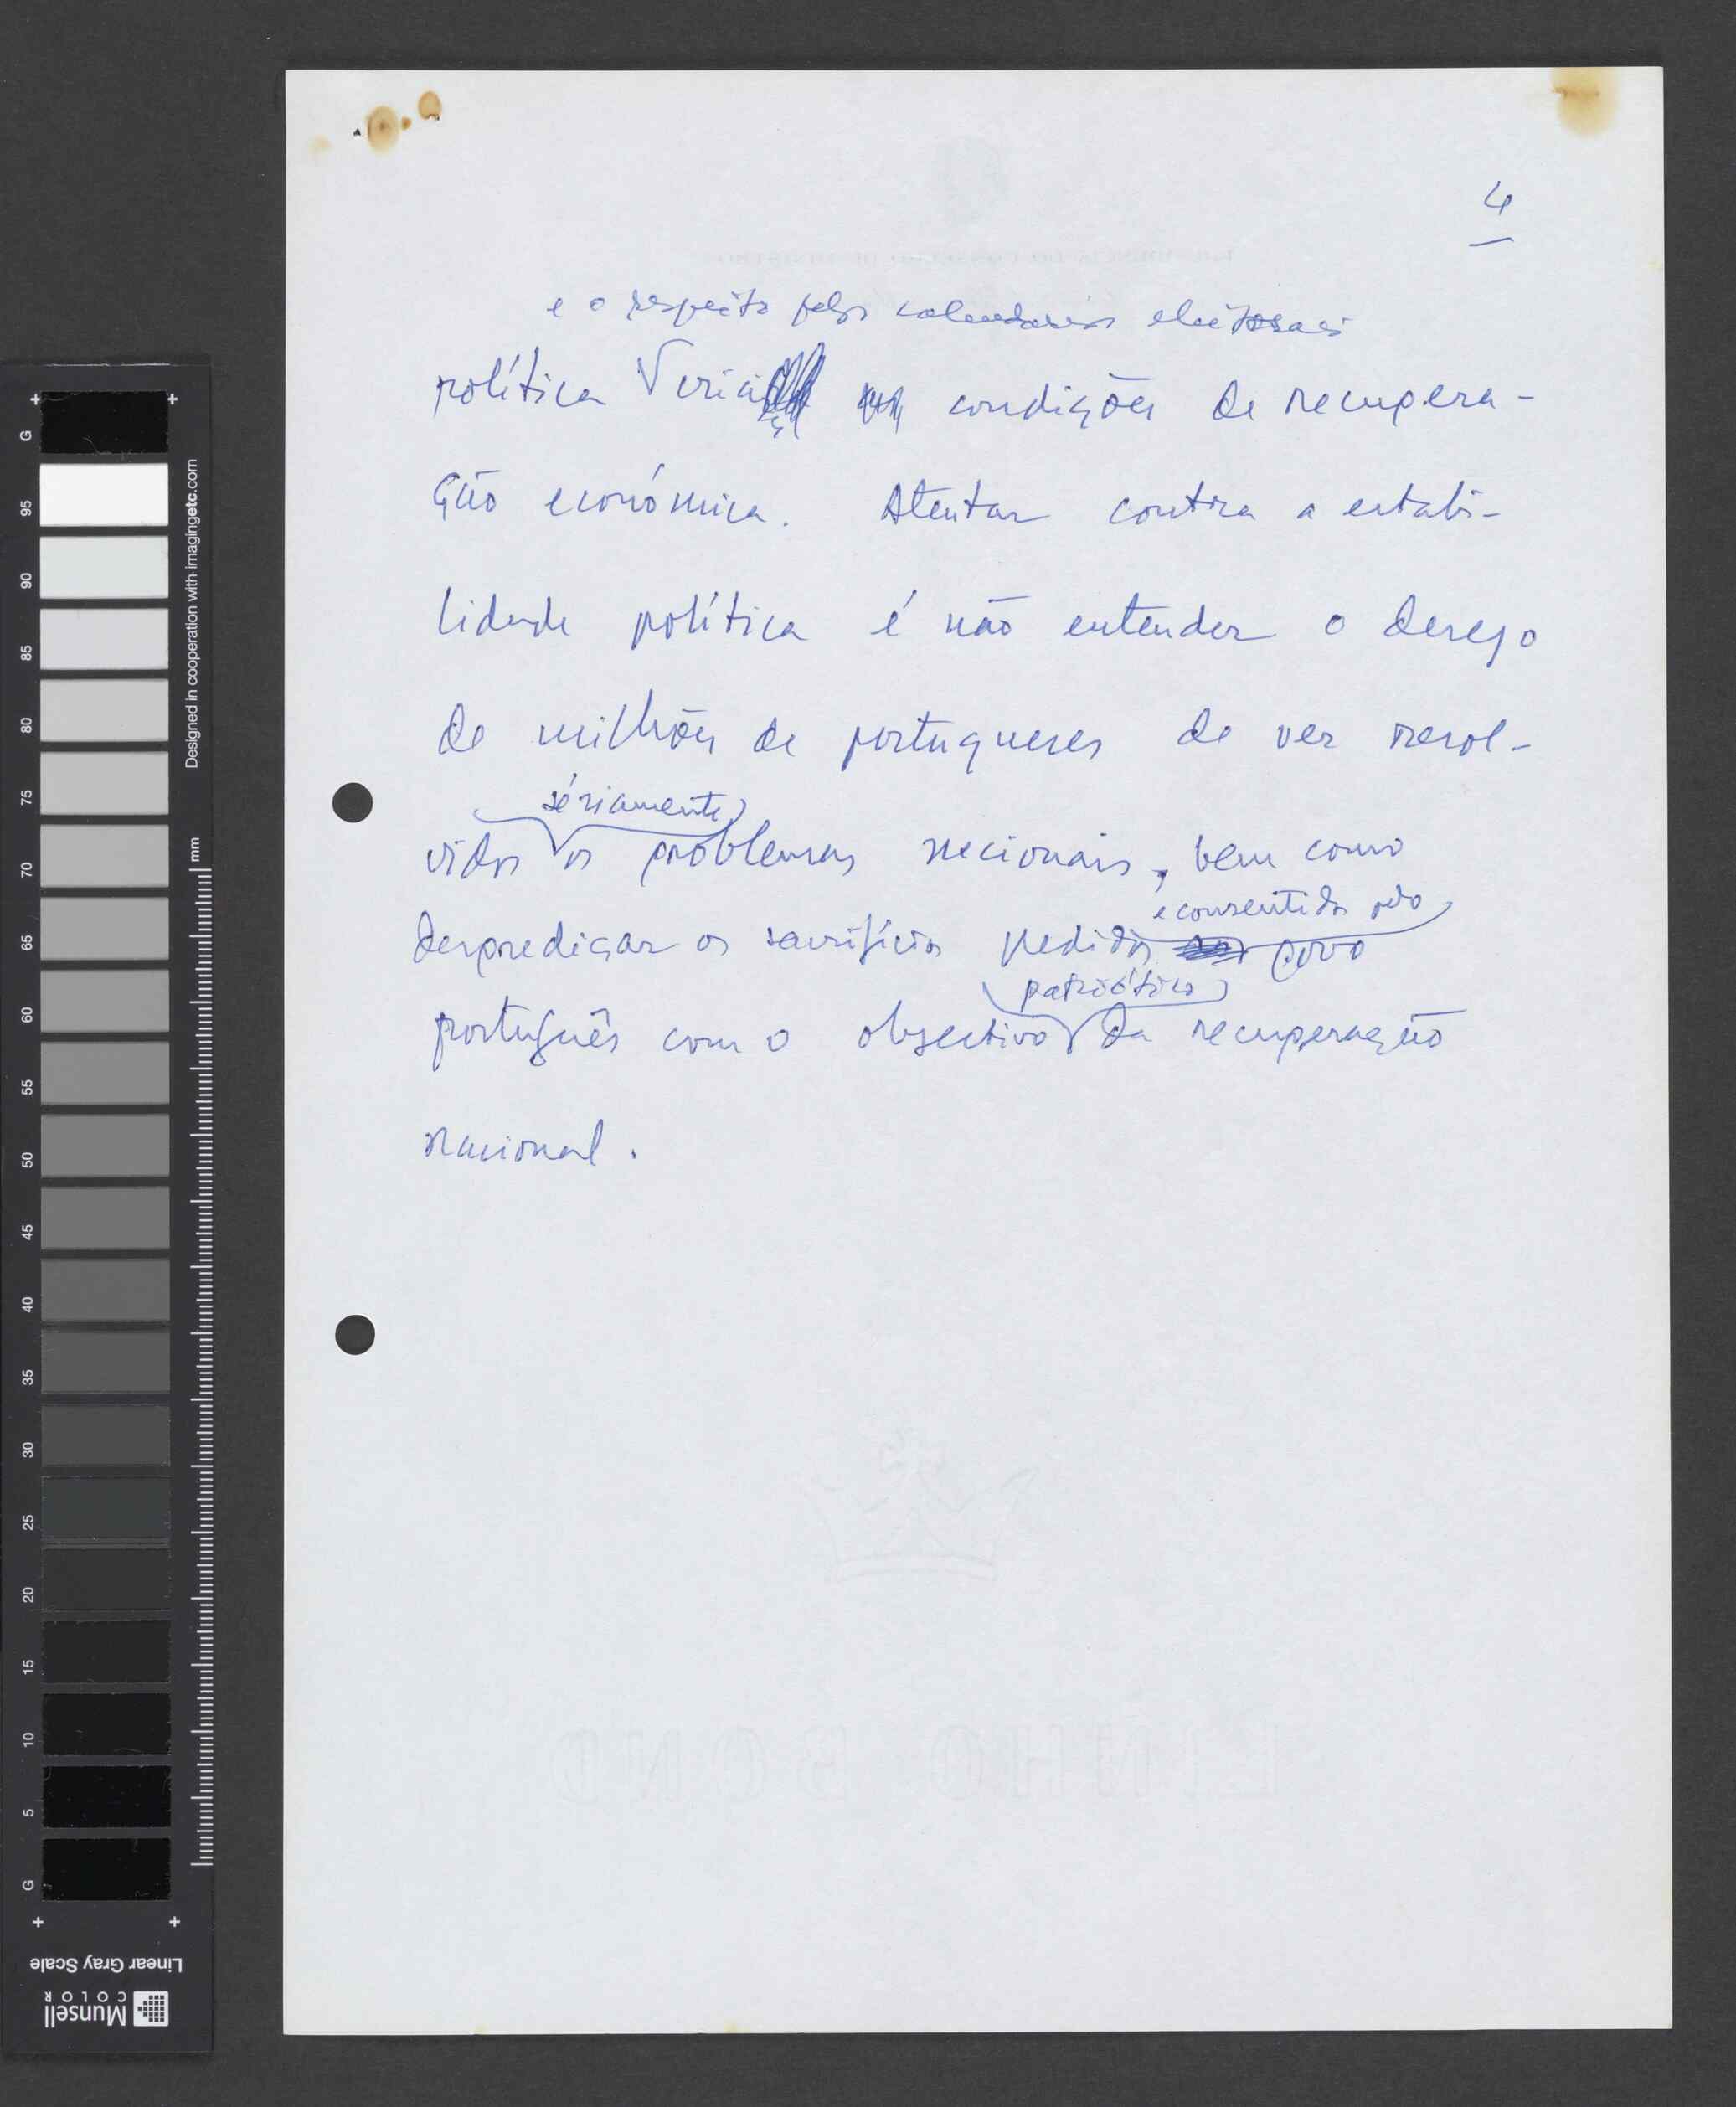 4
e o respeito pelos calendários eleitorais
política cria condições de recupera-
ção económica. Atentar contra a estabi-
lidade política é não entender o desejo
de milhões de portugueses de ver resol-
sériamente
vidos os problemas nacionais, bem como
e consentidos pelo
desprediçar os sacrifícios pedidos povo
patriótico
português com o objectivo da recuperação
nacional.
LINHO BOND
G
95
90
85
80
75
70
65
60
55
50
45
40
35
30
25
20
15
10
5
G
mm
Designed in cooperation with imagingetc.com
Linear Gray Scale
Munsell
COLOR